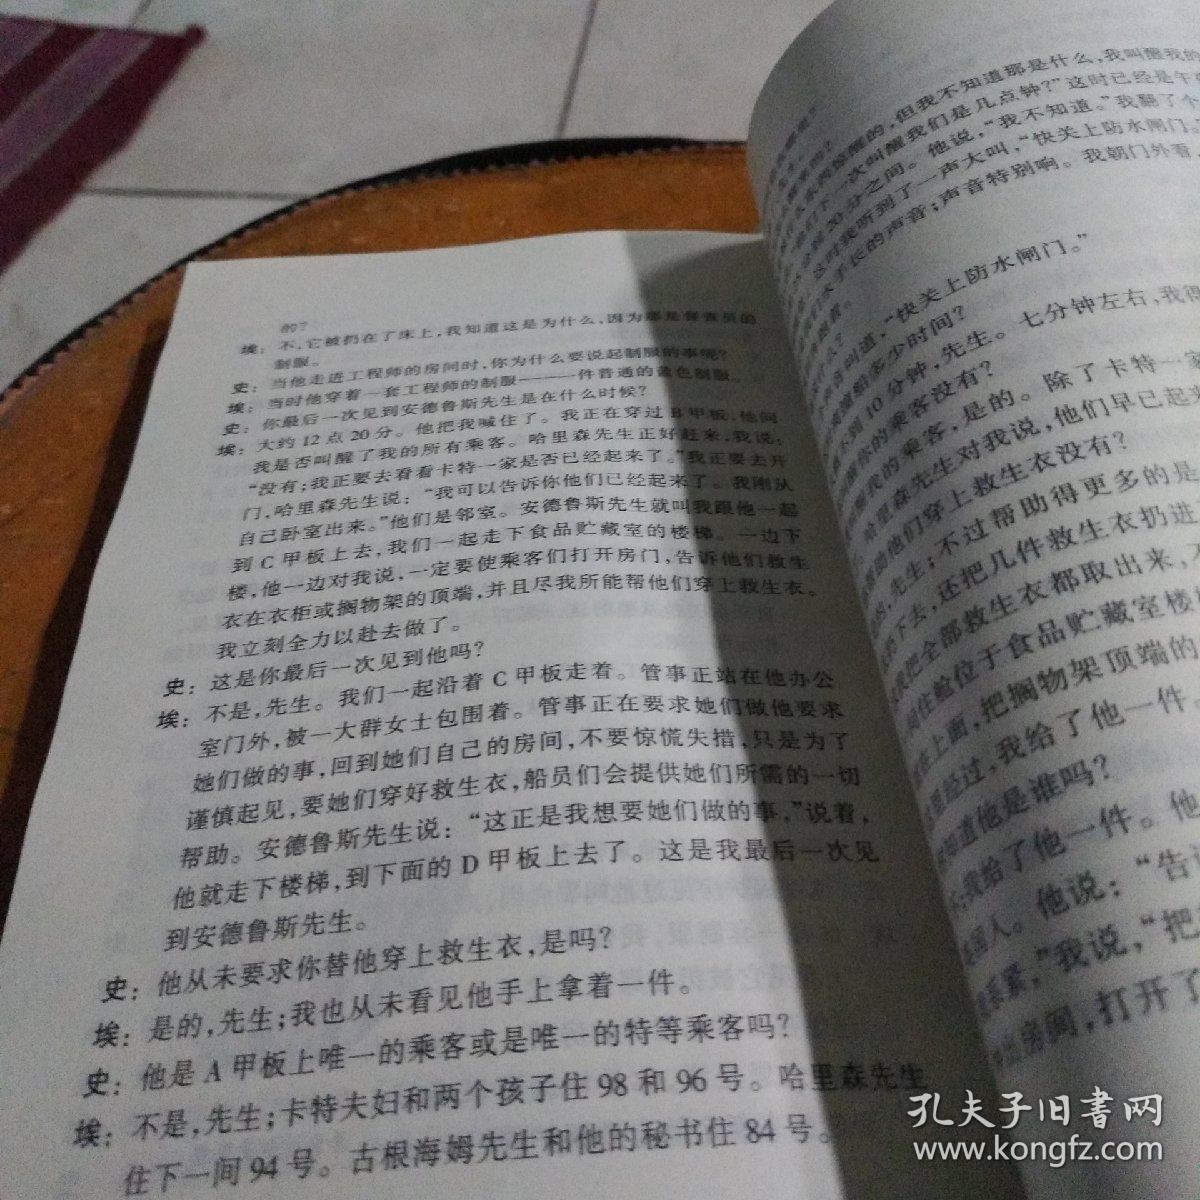 的?
埃：不，它被扔在了床上，我知道这是为什么，因为那是督查员的
制服。
史：当他走进工程师的房间时，你为什么要说起制服的事呢?
埃：当时他穿着一套工程师的制服———件普通的蓝色制服。
史：你最后一次见到安德鲁斯先生是在什么时候?
埃：大约12点20分。他把我喊住了。我正在穿过B甲板，他问
我是否叫醒了我的所有乘客。哈里森先生正好赶来，我说：
“没有；我正要去看看卡特一家是否已经起来了。”我正要去开
门，哈里森先生说：“我可以告诉你他们已经起来了。我刚从
自己卧室出来。”他们是邻室。安德鲁斯先生就叫我跟他一起
到C甲板上去，我们一起走下食品贮藏室的楼梯。一边下
楼，他一边对我说，一定要使乘客们打开房门，告诉他们救生
衣在衣柜或搁物架的顶端，并且尽我所能帮他们穿上救生衣。
我立刻全力以赴去做了。
史：这是你最后一次见到他吗?
埃：不是，先生。我们一起沿着C甲板走着。管事正站在他办公
室门外，被一大群女士包围着。管事正在要求她们做他要求
她们做的事，回到她们自己的房间，不要惊慌失措，只是为了
谨慎起见，要她们穿好救生衣，船员们会提供她们所需的一切
帮助。安德鲁斯先生说：“这正是我想要她们做的事，”说着，
他就走下楼梯，到下面的D甲板上去了。这是我最后一次见
到安德鲁斯先生。
史：他从未要求你替他穿上救生衣，是吗?
埃：是的，先生；我也从未看见他手上拿着一件。
史：他是A甲板上唯一的乘客或是唯一的特等乘客吗?
埃：不是，先生；卡特夫妇和两个孩子住98和96号。哈里森先生
住下一间94号。古根海姆先生和他的秘书住84号。
的，但我不知道那是什么，我叫醒我的
一次叫醒我们是几点钟?”这时已经是午
20分之间。他说，“我不知道。”我翻了个
这时我听到了一声大叫，“快关上防水闸门，
水手长的声音；声音特别响。我朝门外看，
叫道，“快关上防水闸门。”
多少时间?
不到10分钟，先生。七分钟左右，我得
醒你的乘客没有?
我的乘客，是的。除了卡特一家
哈里森先生对我说，他们早已起
帮助他们穿上救生衣没有?
的，先生；不过帮助得更多的是
下去，还把几件救生衣扔进
我把全部救生衣都取出来，
住舱位于食品贮藏室楼
上面，把搁物架顶端的
经过，我给了他一件。
知道他是谁吗?
我给了他一件。他
国人。他说：“告
系紧，”我说，“把
房间，打开了
孔夫子旧书网
www.kongfz.com